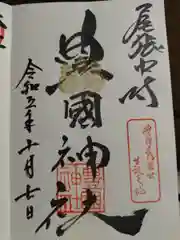 尾張中村
豊國神社
令和五年十月七日
豊國神社